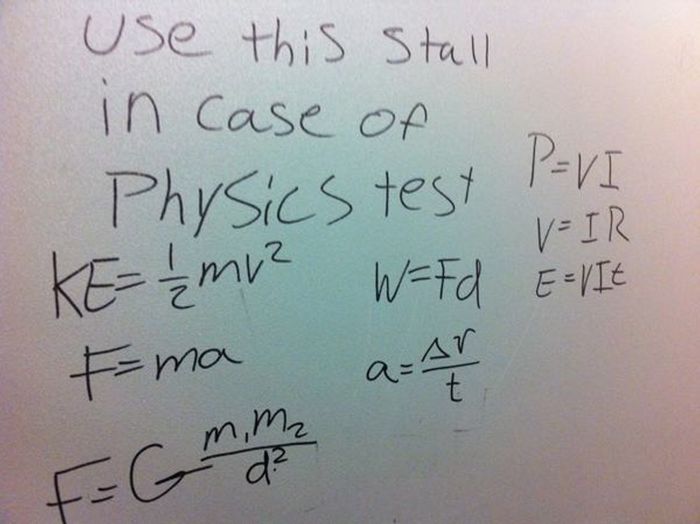 Use this stall
in case of
Physics test
P=VI
V=IR
E=VIt
KE=½mv²
W=Fd
F=ma
a=Δv/t
F=G m₁m₂/d²